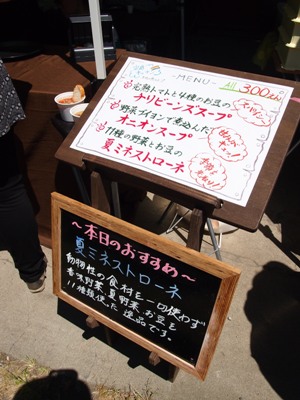 -MENU-
All 300えん
完熟トマトと4種のお豆の
チリビーンズスープ
野菜ブイヨンで煮込んだ
オニオンスープ
11種の野菜とお豆の
夏ミネストローネ
〜本日のおすすめ〜
夏ミネストローネ
動物性の食材を一切使わず
香味野菜、夏野菜、お豆を
11種類使った逸品です。